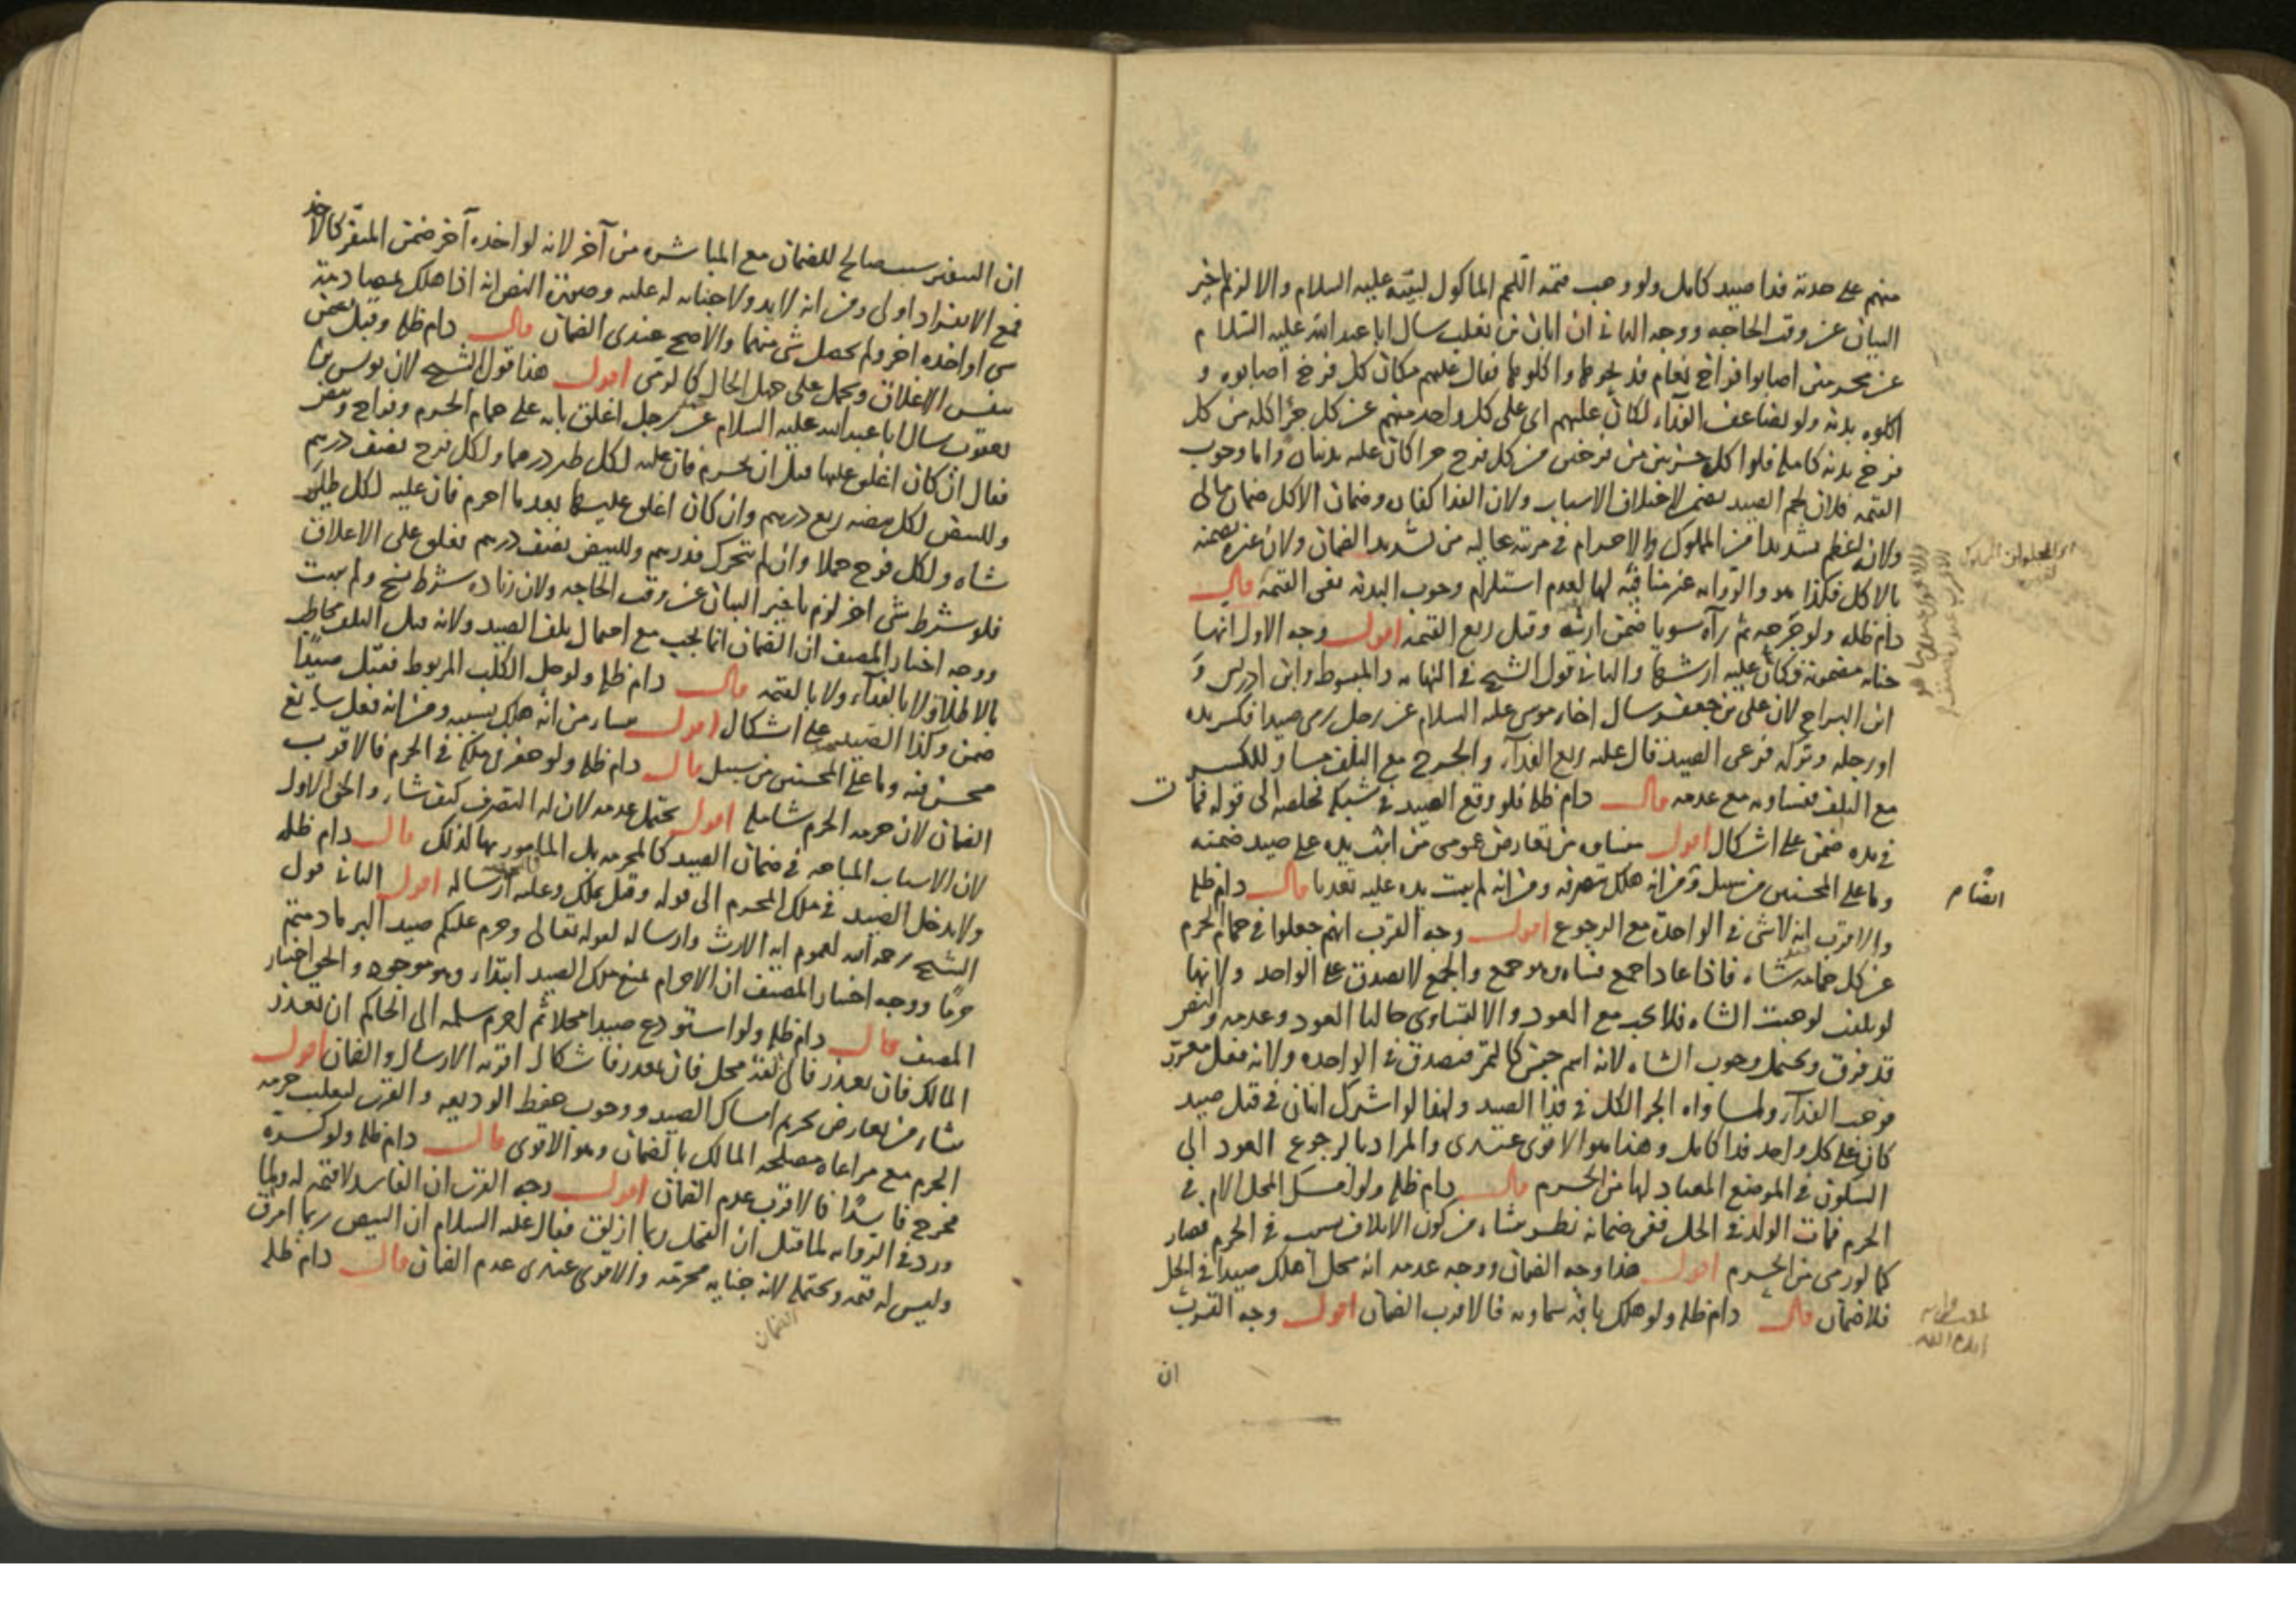 منهم على حدته فدا صيد كامل ولو وجب قيمة اللحم الماكول لبينه عليه السلام والا لزم تاخير
البيان عن وقت الحاجه ووجه الثانى ان ابان بن تغلب سال ابا عبد الله عليه السلام
عن محرمين اصابوا فراخ نعام فذبحوها واكلوها فقال عليهم مكان كل فرخ اصابوه و
اكلوه بدنة ولو يضاعف الفدآء لكان عليهم اى على كل واحد منهم عن كل جزء اكله من كل
فرخ بدنه كامله فلو اكل جزئين من فرخين من كل فرخ جزا كان عليه بدنتان واما وجوب
القيمه فلان لحم الصيد يضمن لاختلاف الاسباب ولان الفدا كفاره وضمان الاكل ضمان مالى
ولانه اعظم تشديدا من المملوك والاحرام فى مرتبة عاليه من تشديد الضمان ولان غيره يضمنه
بالاكل فكذا هو والروايه غير منافية لها لعدم استلزام وجوب البدنه نفى القيمة قال
دام ظله ولو جرحه ثم رآه سويا ضمن ارشه وقيل ربع القيمه اقول وجه الاول انها
جنايه مضمونة فكان عليه ارشها والثانى قول الشيخ فى النهايه والمبسوط وابن ادريس و
ابن البراج لان على بن جعفر سال اخاه موسى عليه السلام عن رجل رمى صيدا فكسر يده
او رجله وتركه فرعى الصيد قال عليه ربع الفدآء والجرح مع التلف مساو للكسر
مع التلف فيساويه مع عدمه قال دام ظله فلو وقع الصيد فى شبكه فخلصه الى قوله فمات
فى يده ضمن على اشكال اقول ينشاء من تعارض عمومى من اثبت يده على صيد ضمنه
وما على المحسنين من سبيل ومن انه هلك بتصرفه ومن انه لم يثبت يده عليه تعديا قال دام ظله
والاقرب انه لا شى فى الواحدة مع الرجوع اقول وجه القرب انهم جعلوا فى حمام الحرم
عن كل حمامه شاه فاذا عاد الجميع فشاه وهو جمع والجمع لا يصدق على الواحد ولانها
لو تلفت لوجبت الشاه فلا يجب مع العود والا لتساوى حالتا العود وعدمه والنص
قد فرق ويحتمل وجوب الشاه لانه اسم جنس كالتمر فيصدق فى الواحده ولانه فعل محرم
فوجب الفدآء ولمساواه الجزء الكل فى فدا الصيد ولهذا لو اشترك اثنان فى قتل صيد
كان على كل واحد فدا كامل وهذا هو الاقوى عندى والمراد بالرجوع العود الى
السكون فى الموضع المعتاد لها من الحرم قال دام ظله ولو امسك المحل الام فى
الحرم فمات الولد فى الحل ففى ضمانه نظر ينشاء من كون الاتلاف بسبب فى الحرم فصار
كما لو رمى من الحرم اقول هذا وجه الضمان ووجه عدمه انه محل اهلك صيدا فى الحل
فلا ضمان قال دام ظله ولو هلك بافه سماويه فالاقرب الضمان اقول وجه القرب
ان
ان السفر سبب صالح للضمان مع المباشره من آخر لانه لو اخذه آخر ضمن المنفر كالاخذ
فمع الانفراد اولى ومن انه لا يد ولا جنايه له عليه وصورة النص انه اذا هلك بمصادمة
شى او اخذه اخر ولم يحصل شى منهما والاصح عندى الضمان قال دام ظله وقيل يضمن
بنفس الاغلاق ويحمل على جهل الحال كالرمى اقول هذا قول الشيخ لان يونس بن
يعقوب سال ابا عبد الله عليه السلام عن رجل اغلق بابه على حمام الحرم وفراخ وبيض
فقال ان كان اغلق عليها قبل ان يحرم فان عليه لكل طير درهما ولكل فرخ نصف درهم
وللبيض لكل بيضه ربع درهم وان كان اغلق عليها بعد ما احرم فان عليه لكل طاير
شاه ولكل فرخ حملا وان لم تتحرك فدرهم وللبيض نصف درهم فعلق على الاغلاق
فلو شرط شى اخر لزم تاخير البيان عن وقت الحاجه ولان زياده شرط نسخ ولم يثبت
ووجه اختيار المصنف ان الضمان انما يجب مع احتمال تلف الصيد ولانه قبل التلف لا يخاطب
بالاطلاق لا بالفداء ولا بالقيمه قال دام ظله ولو حل الكلب المربوط فقتل صيدا
ضمن وكذا الصيد على اشكال اقول ينشاء من انه هلك بسببه ومن انه فعل سايغ
محسن فيه وما على المحسنين من سبيل قال دام ظله ولو حفر فى ملكه فى الحرم فالاقرب
الضمان لان حرمه الحرم شامله اقول يحتمل عدمه لان له التصرف كيف شاء والحق الاول
لان الاسباب المباحه فى ضمان الصيد كالمحرمه بل المامور بها كذلك قال دام ظله
ولا يدخل الصيد فى ملك المحرم الى قوله وقيل يملك وعليه ارساله اقول الثانى قول
الشيخ رحمه الله لعموم ايه الارث وارساله لقوله تعالى وحرم عليكم صيد البر ما دمتم
حرما ووجه اختيار المصنف ان الاحرام يمنع ملك الصيد ابتداء وهو موجود والحق اختيار
المصنف قال دام ظله ولو استودع صيدا محلا ثم احرم سلمه الى الحاكم ان تعذر
المالك فان تعذر فالى ثقه محل فان تعذر فاشكال اقربه الارسال والضمان اقول
ينشاء من تعارض تحريم امساك الصيد ووجوب حفظ الوديعه والقرب لتغليب حرمه
الحرم مع مراعاه مصلحه المالك بالضمان وهو الاقوى قال دام ظله ولو كسره
فخرج فاسدا فالاقرب عدم الضمان اقول وجه القرب ان الفاسد لا قيمه له ولما
ورد فى الروايه لما قيل ان الفحل ربما ازلق فقال عليه السلام ان البيض ربما امرق
وليس له قيمه ويحتمل لانه جنايه محرمه والاقوى عندى عدم الضمان قال دام ظله
الضمان